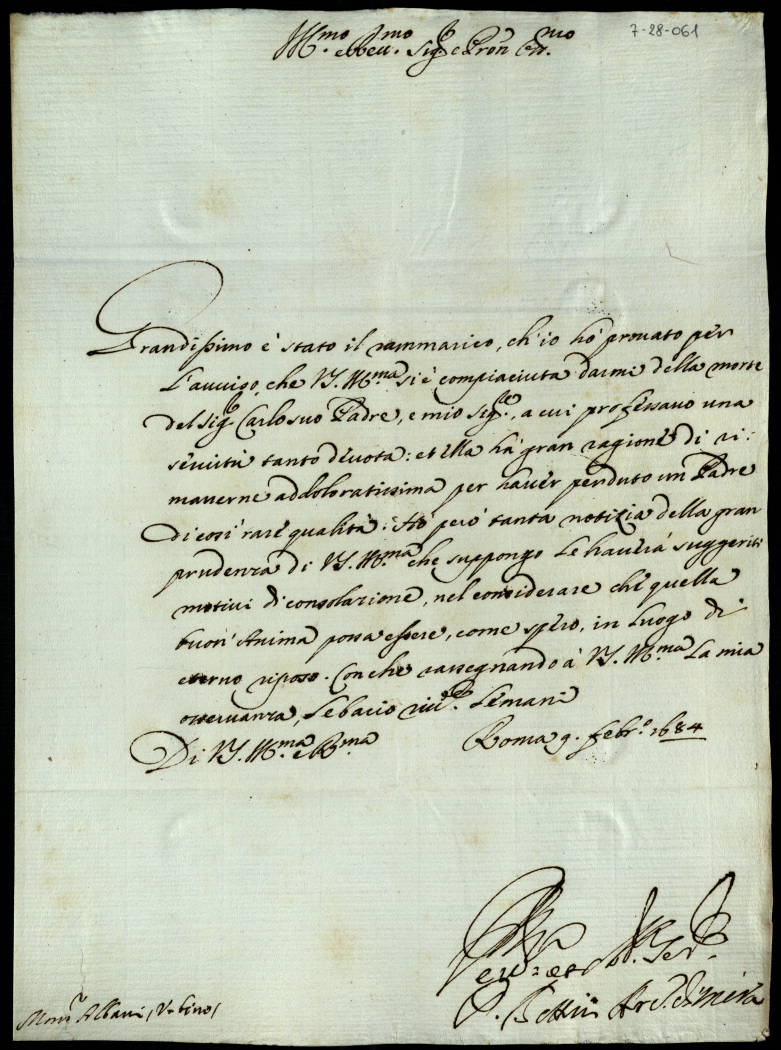 7-28-061
Ill.mo e Rev.mo Sig.r e Pron Col.mo
Grandissimo è stato il rammarico, ch'io hò prouato per
l'auuiso, che V.S. Ill.ma si è compiaciuta darmi della morte
del Sig.r Carlo suo Padre, e mio Sig.re, a cui professauo una
seruitù tanto deuota: et ella hà gran ragione di ri:
manerne addoloratissima per hauer perduto un Padre
di cosi rare qualità. Hò però tanta notizia della gran
prudenza di V.S. Ill.ma che suppongo le hauerà suggeriti
motiui di consolazione, nel considerare che quella
buon'Anima possa essere, come spero, in luogo di
eterno riposo. Con che rassegnando à V.S. Ill.ma la mia
osseruanza, le bacio riu.te le mani
Di V.S. Ill.ma e R.ma Roma 9. Febr.o 1684
Deu. et Ob. Ser.
Mons.r Albani, Vrbino,